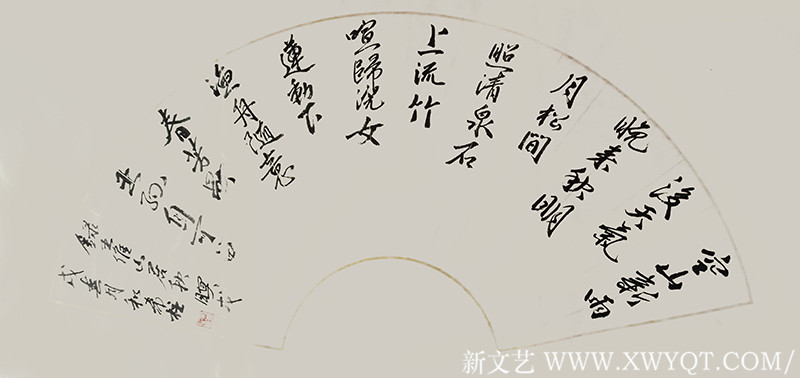 空山新雨
後天氣
晚来秋明
月松間
照清泉石
上流竹
喧歸浣女
蓮動下
漁舟隨意
春芳歇
王孫自可
錄王維山居秋暝
新文艺 WWW.XWYQT.COM/